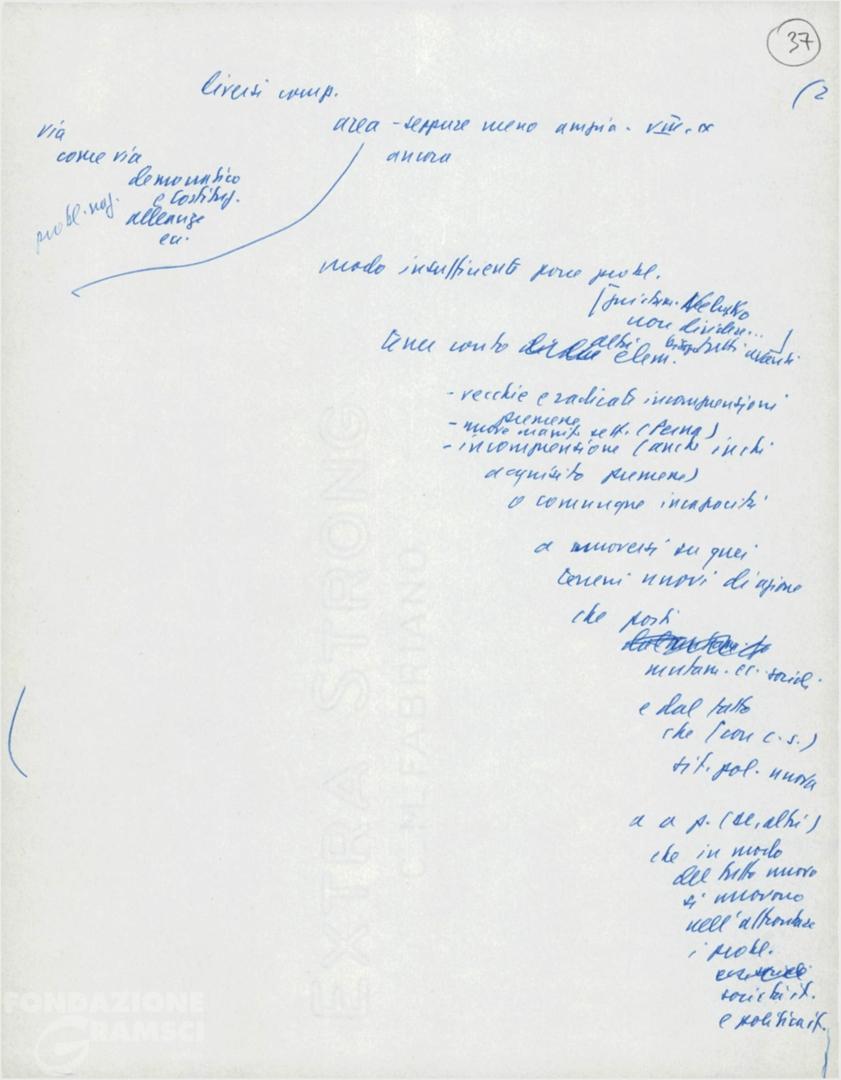 37
(2
diversi comp.
area - seppure meno ampia - VIII-IX
ancora
via
come via
democratico
e costituz.
alleanze
ecc.
probl. naz.
modo insufficiente porre probl.
non dividere...
tener conto altri elem.
- vecchie e radicate incomprensioni
permene
- nuove manif. sett. (Perna)
- incomprensione (anche in chi
acquisito permene)
o comunque incapacità
a muoversi su quei
terreni nuovi di azione
che posti
mutam. ec. sociali
e dal fatto
che (con c.s.)
sit. pol. nuova
a a p. (se, altri)
che in modo
del tutto nuovo
si muovono
nell'affrontare
i probl.
società it.
e politica it.
EXTRA STRONG
C. M. FABRIANO
FONDAZIONE
GRAMSCI